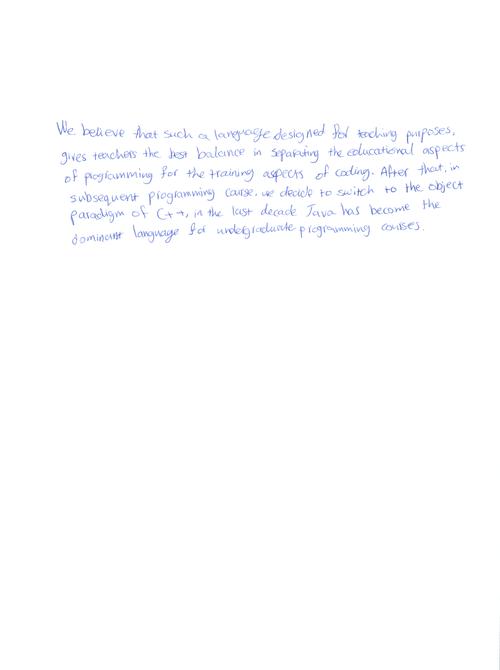 We believe that such a language designed for teaching purposes,
gives teachers the best balance in separating the educational aspects
of programming for the training aspects of coding. After that, in
subsequent programming course, we decide to switch to the object
paradigm of C++, in the last decade Java has become the
dominant language for undergraduate programming courses.